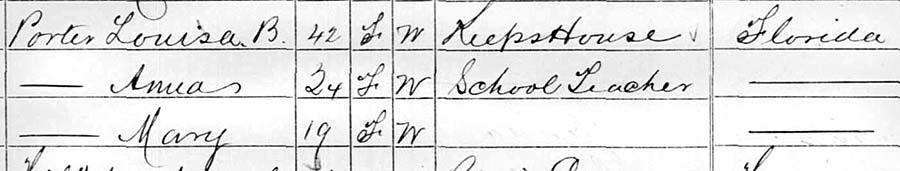 Porter Louisa B. 42 F W Keeps House Florida
—— Anna 24 F W School Teacher ——
—— Mary 19 F W ——